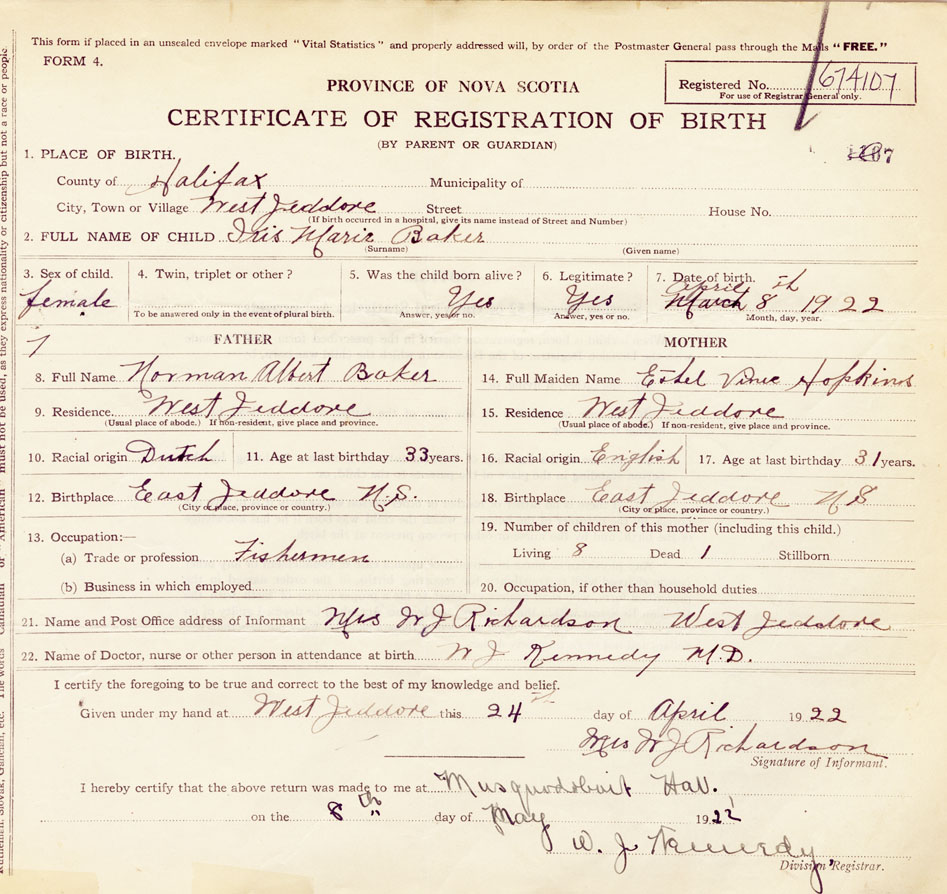 This form if placed in an unsealed envelope marked "Vital Statistics" and properly addressed will, by order of the Postmaster General pass through the Mails "FREE."
FORM 4.
Registered No. 674107
For use of Registrar General only.
PROVINCE OF NOVA SCOTIA
CERTIFICATE OF REGISTRATION OF BIRTH
(BY PARENT OR GUARDIAN)
1. PLACE OF BIRTH.
County of Halifax Municipality of
City, Town or Village West Jeddore Street House No.
(If birth occurred in a hospital, give its name instead of Street and Number)
2. FULL NAME OF CHILD Iris Marie Baker
(Surname) (Given name)
3. Sex of child. 4. Twin, triplet or other? 5. Was the child born alive? 6. Legitimate? 7. Date of birth.
female Yes Yes April March 8 th 1922
To be answered only in the event of plural birth. Answer, yes or no. Answer, yes or no. Month, day, year.
FATHER
8. Full Name Norman Albert Baker
9. Residence. West Jeddore
(Usual place of abode.) If non-resident, give place and province.
10. Racial origin Dutch 11. Age at last birthday 33 years.
12. Birthplace East Jeddore N.S.
(City or place, province or country.)
13. Occupation:—
(a) Trade or profession Fishermen
(b) Business in which employed
MOTHER
14. Full Maiden Name Hopkins
15. Residence West Jeddore
(Usual place of abode.) If non-resident, give place and province.
16. Racial origin English 17. Age at last birthday 31 years.
18. Birthplace East Jeddore N S
(City or place, province or country.)
19. Number of children of this mother (including this child.)
Living 8 Dead 1 Stillborn
20. Occupation, if other than household duties
21. Name and Post Office address of Informant Mrs W J Richardson West Jeddore
22. Name of Doctor, nurse or other person in attendance at birth W J Kennedy M.D.
I certify the foregoing to be true and correct to the best of my knowledge and belief.
Given under my hand at West Jeddore this 24 day of April 1922
Mrs W J Richardson
Signature of Informant.
I hereby certify that the above return was made to me at Musquodoboit Har.
on the 8th day of May 1922
W. J. Kennedy
Division Registrar.